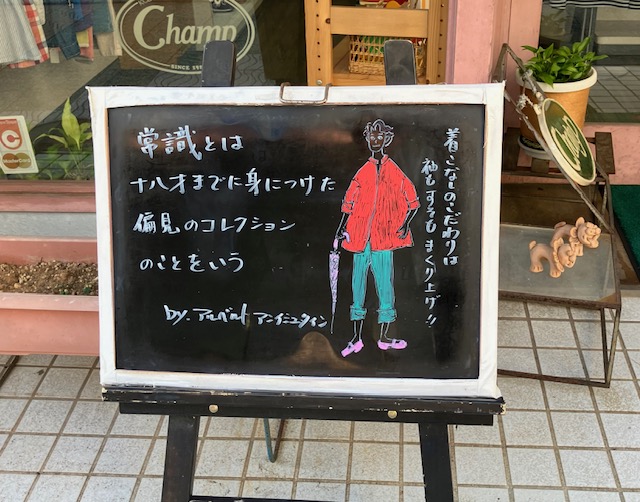 Champ
SINCE 19
常識とは
十八才までに身につけた
偏見のコレクション
のことをいう
by. アルベルト アインシュタイン
着こなしのこだわりは
袖もすそもまくり上げ!!
C